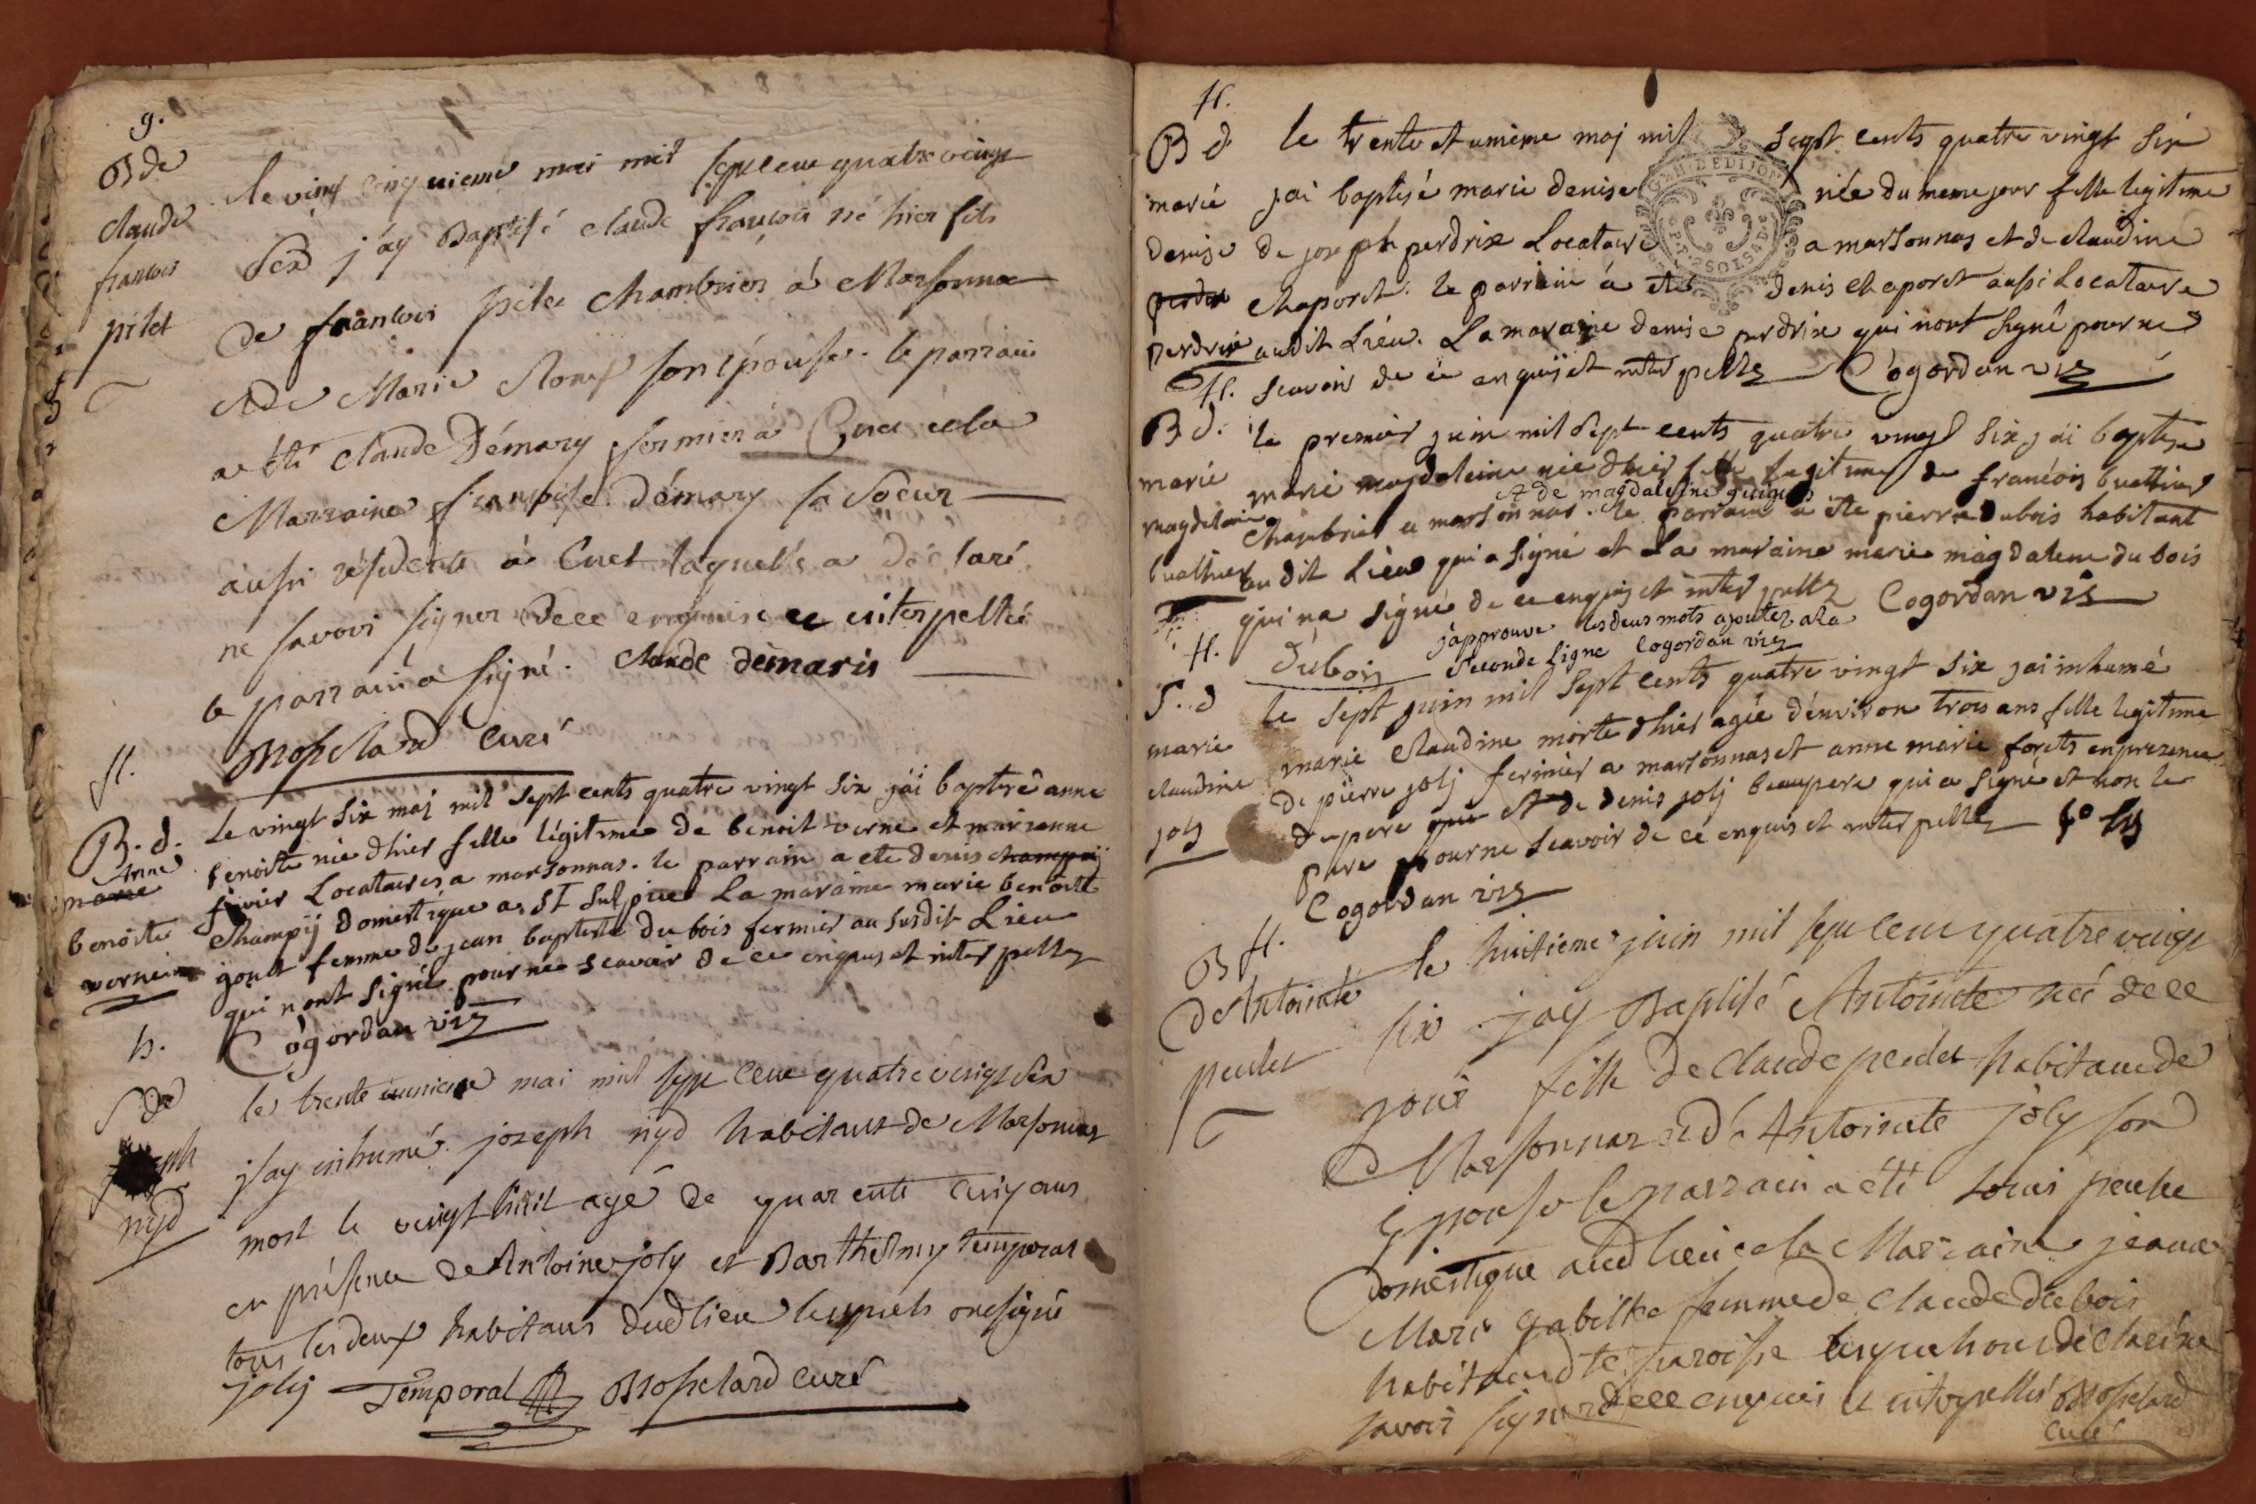 g.
B de
claude
francois
pilet
le vingt cinquieme mai mil sept cent quatre vingt
six j'ay Baptisé claude francois né hier fils
de francois pilet chambrier à Marsonna
et de Marie son épouse. le parrain
a été claude Démary fermier à Cuet et la
Marraine francoise Démary sa soeur
aussi résidente à Cuet laquelle a déclaré
ne savoir signer de ce enquise et interpellée
le parrain a signé. claude démaris
curé
H.
B. d.
Anne
marie
benoite
verne
le vingt six maj mil sept cents quatre vingt six jái baptisé anne
benoite nie d'hier fille légitime de benoit verne et marianne
fivier Locataires a marsonnas. le parrain a ete denis champij
champij domestique a St Sulpice La maraine marie benoitte
goult femme de jean baptiste du bois fermier au susdit Lieu
qui nont signé pour ne scavoir de ce enquis et interpellez
Cogordan viz
h.
S de
joseph
nyd
le trente unieme mai mil sept cent quatre vingt six
j'ay inhumé joseph nyd habitant de Marsonnas
mort le vingt huit agé de quarente cinq ans
en présence de Antoine joly et Barthelmy temporal
tous les deux habitans dud lieu lesquels ont signé
jolij Temporal curé
H.
B d
marie
denise
perdrix
perdrix
le trente et unième maj mil sept cents quatre vingt six
jai baptisé marie denise née du meme jour fille legitime
de joseph perdrix Locataire a marsonnas et de claudine
chaporet. le parrain à ete denis chaporet aussi Locataire
audit Lieu. La maraine denise perdrix qui nont signé pour ne
scavoir de ce enquij et interpellez Cogordan viz
H.
B d.
marie
magdelaine
buathier
le premier juin mil sept cents quatre vingt six jái baptise
marie magdeleine nie d'hier fille legitime de francois buathier
et de magdaleine
chambrier a marsonnas. le parrain a ete pierre dubois habitant
au dit Lieu qui a signé et La maraine marie magdalene du bois
qui na signé de ce enquis et interpellez Cogordan viz
dubois japprouve les deux mots ajoutez a la
seconde ligne Cogordan viz
H.
S. d
marie
claudine
jolj
le sept juin mil sept cents quatre vingt six jai inhumé
marie claudine morte d'hier agée d'environ trois ans fille legitime
de pierre jolj fermier a marsonnas et anne marie forets en presence
du pere que et de denis jolj beaupere qui a signé et non le
pere pour ne scavoir de ce enquis et interpellez
Cogordan viz
H.
B
de Antoinete
peulet
le huitieme juin mil sept cent quatre vingt
six j'ay Baptisé Antoinete née de ce
jour fille de claude peulet habitant de
Marsonnas et d'Antoinete joly son
Epouse le parrain a été
domestique aud lieu et la Marraine jeanne
Marie femme de claude dubois
habitant dte paroisse lesquels ont déclaré ne
savoir signer de ce enquis et interpellés
curé